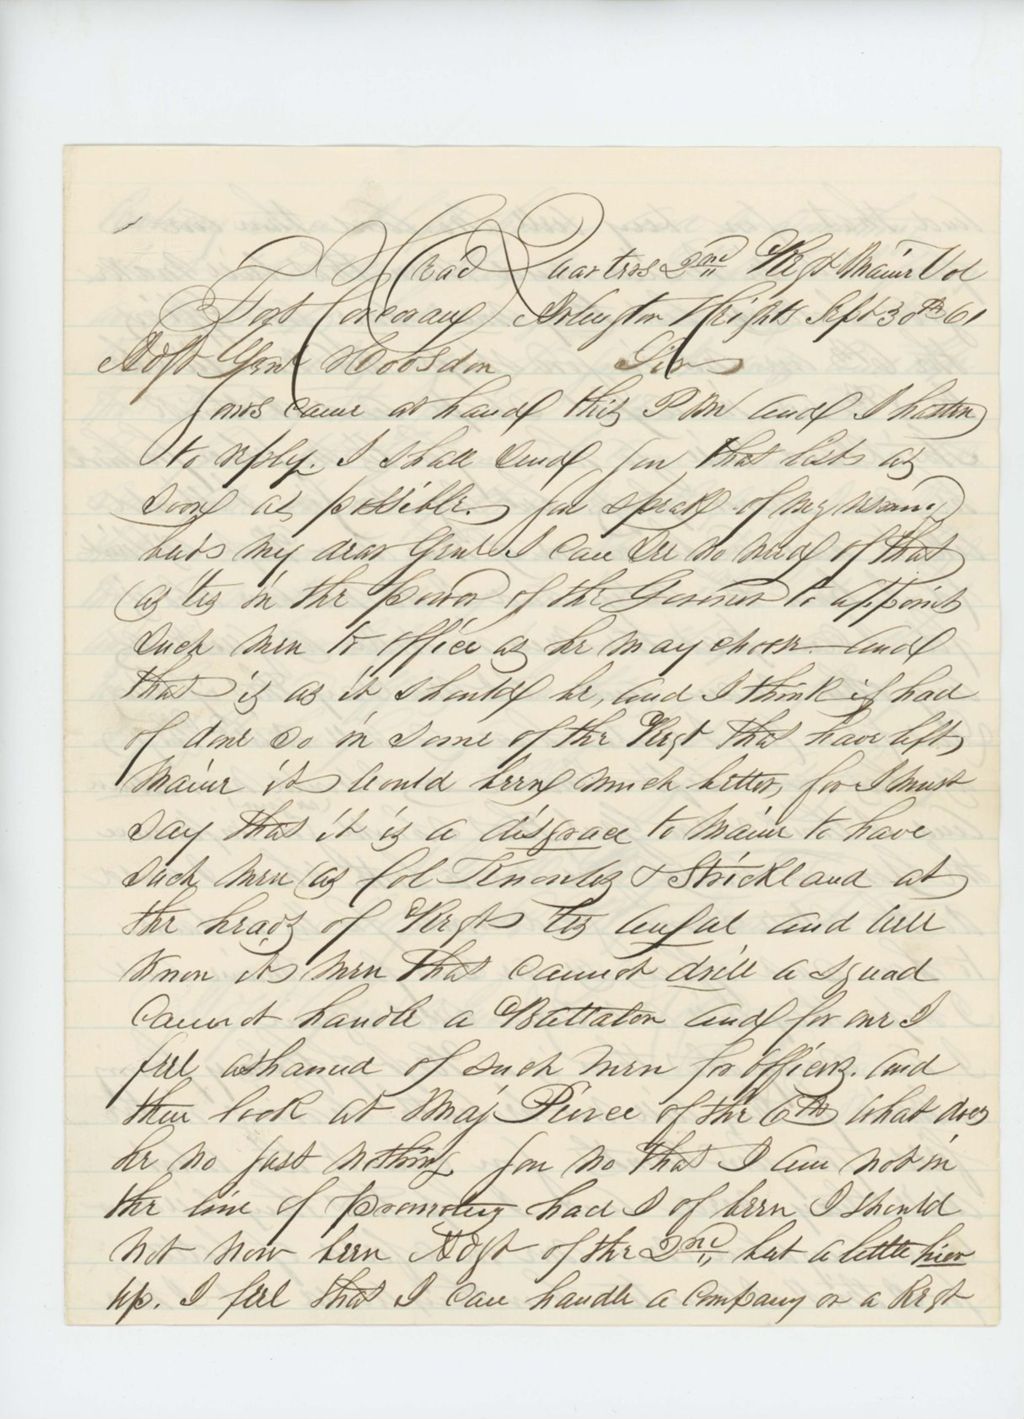 Head Quarters 2nd Regt Maine Vol
Fort Corcoran Arlington Heights Sept 30th 61
Adjt Genl Hodsdon Sir
Yours came at hand this P M and I hasten
to reply. I shall send you that list as
soon as possible. You speak of my
but my dear Genl I can see no need of that
as tis in the power of the Governor to appoint
such men to office as he may chose and
that is as it should be, and I think if had
of done so in some of the Regt that have left
Maine it would been much better, for I must
say that it is a disgrace to Maine to have
such men as Col Knowles & Strickland at
the heads of Regts tis awful and all
know it men that cannot drill a squad
cannot handle a Battalon and for one I
feel ashamed of such men for officers. and
then look at Maj Pierce of the 6th what does
he no just nothing you no that I am not in
the line of promoting had I of been I should
not now been Adjt of the 2nd, but a little hier
up. I feel that I can handle a Company or a Regt